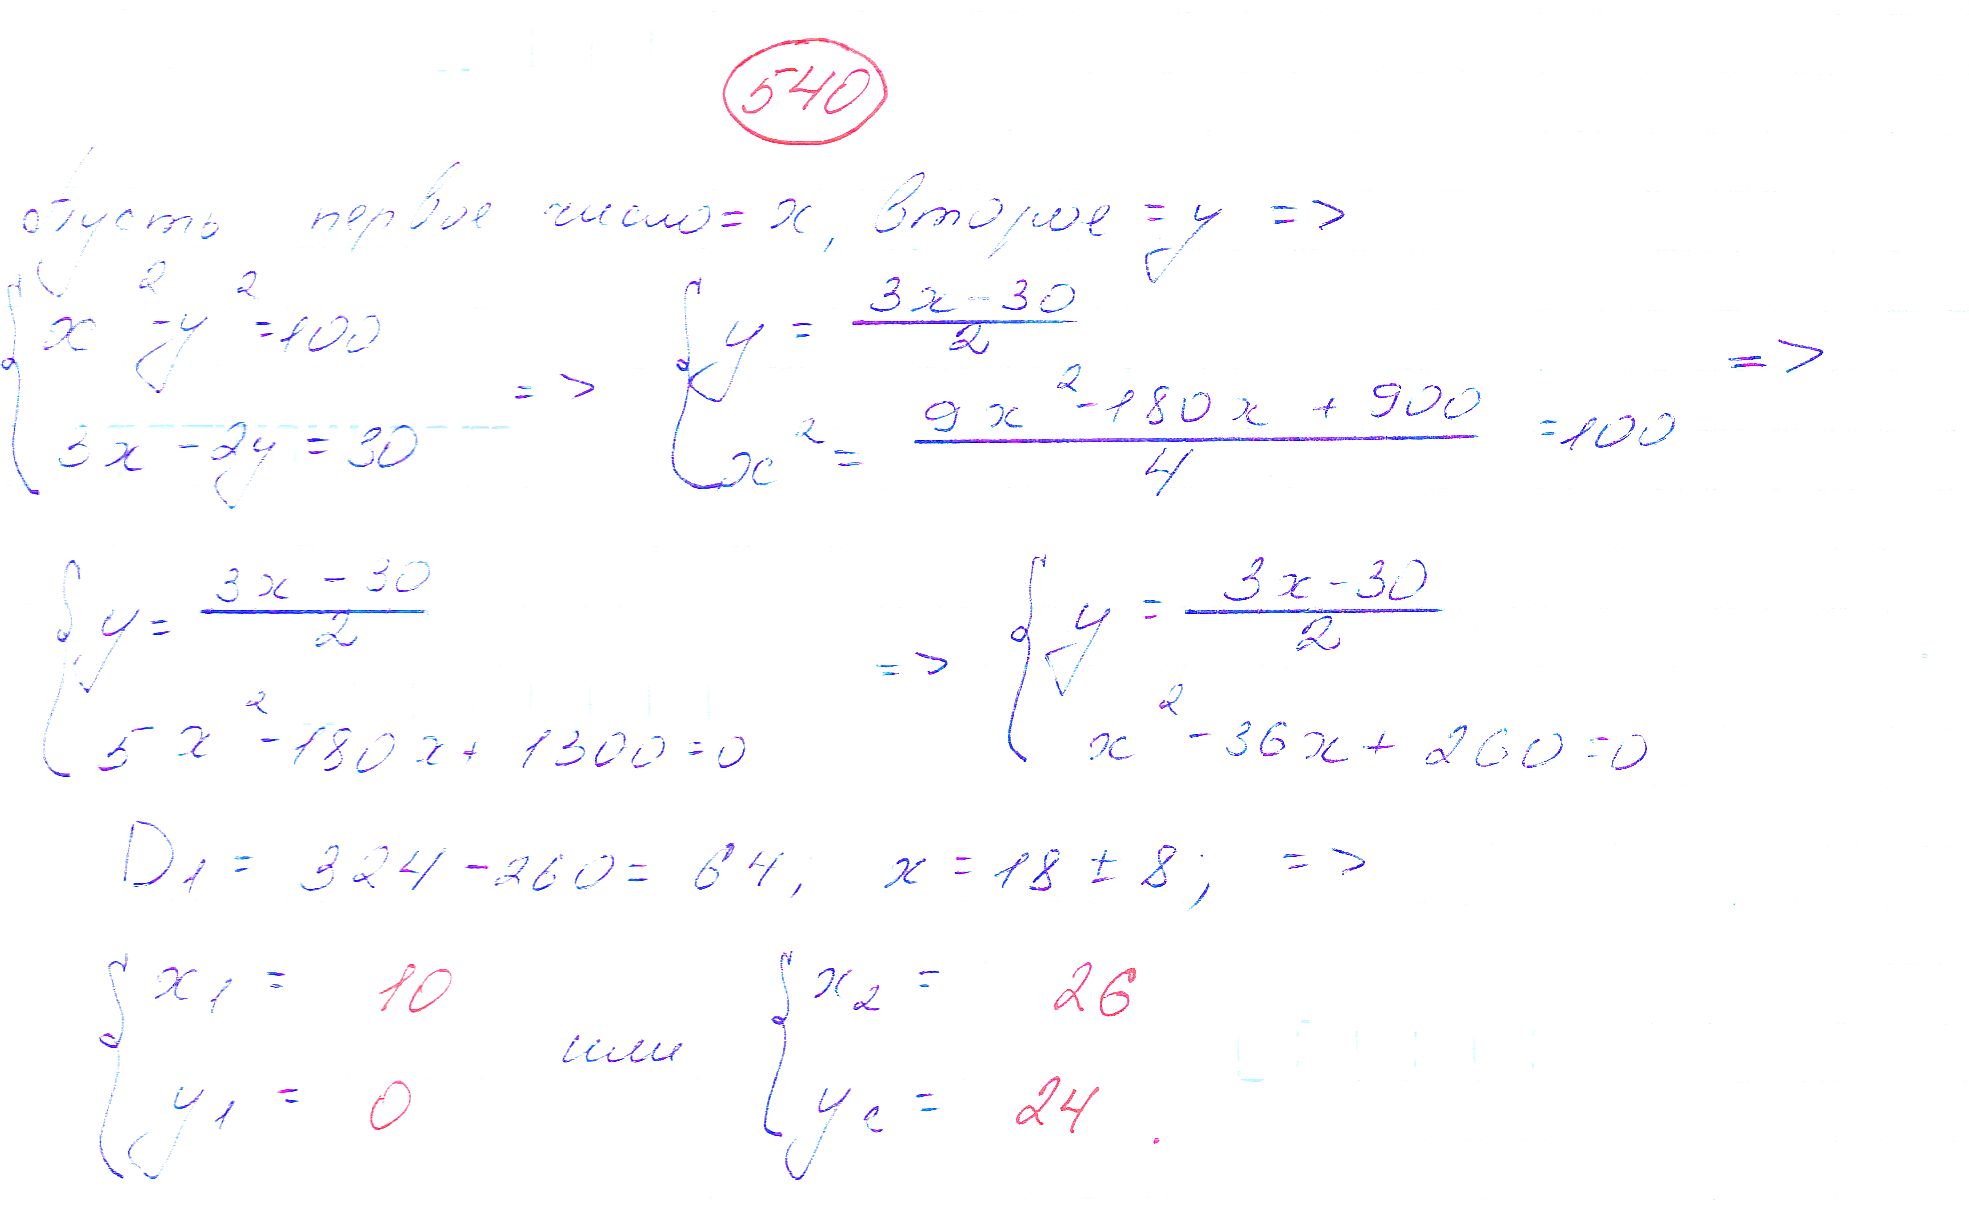 540
Пусть первое число = x, второе = y =>
{ x² - y² = 100 => { y = (3x - 30)/2 =>
{ 3x - 2y = 30 { x² = (9x² - 180x + 900)/4 = 100
{ y = (3x - 30)/2 => { y = (3x - 30)/2
{ 5x² - 180x + 1300 = 0 { x² - 36x + 260 = 0
D₁ = 324 - 260 = 64; x = 18 ± 8; =>
{ x₁ = 10 или { x₂ = 26
{ y₁ = 0 { y₂ = 24.